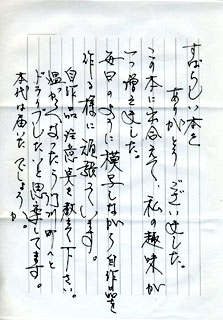 すばらしい本を
ありがとう ございました。
この本に出会えて、私の趣味が
一つ増えました。
毎日のように模写しながら自作品を
作る様に頑張っています。
自作品注意点を教えて下さい。
温かくなったら 町へと
ドライブしたいと思っています。
本代は届いたでしょうか。